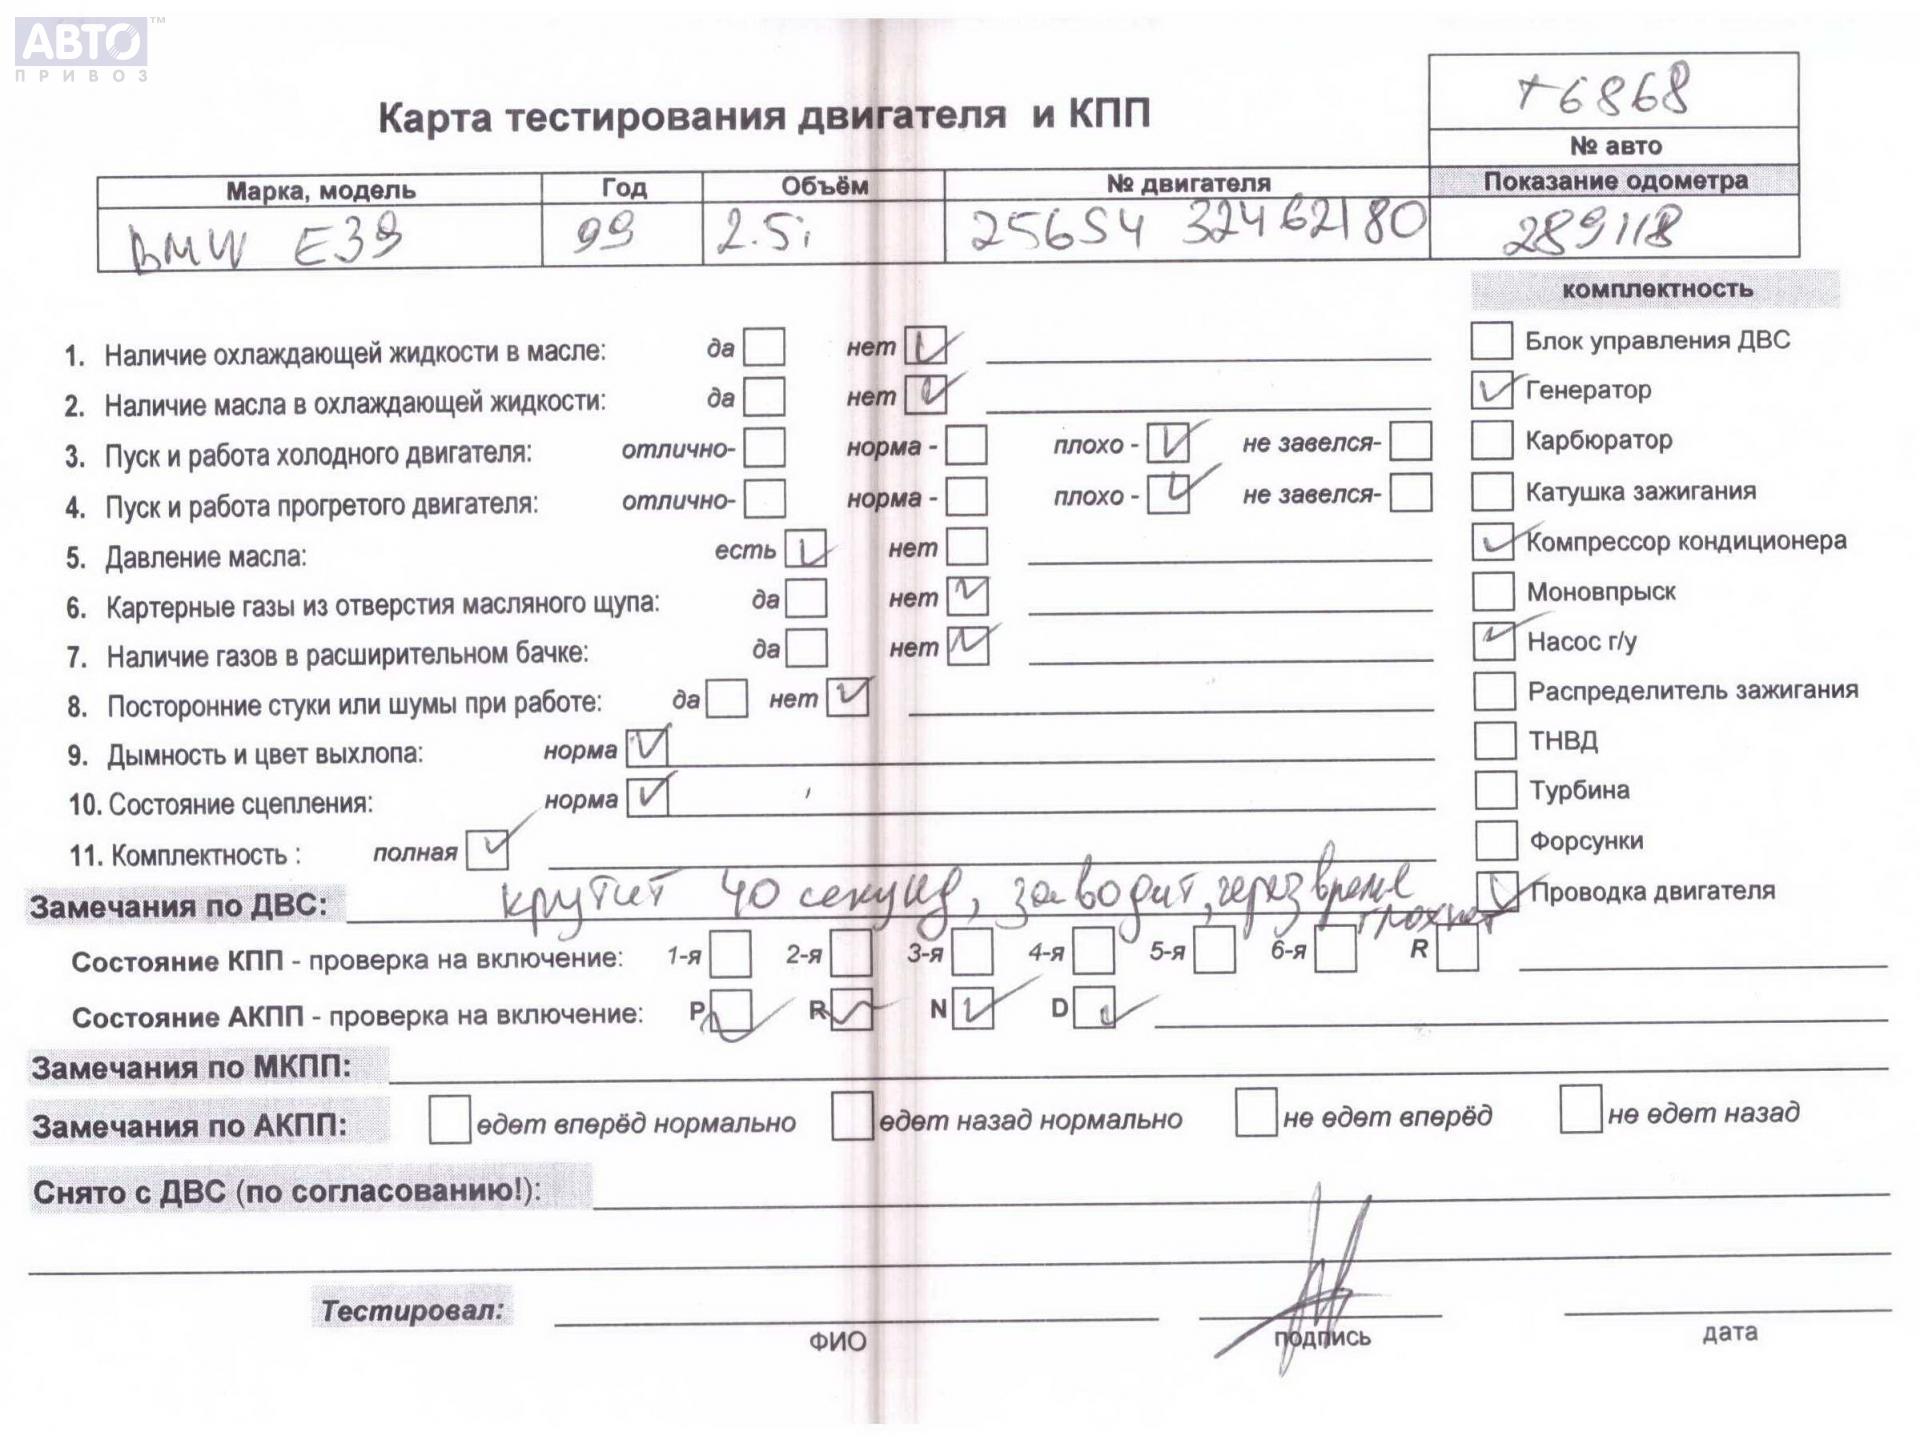 АВТО™
ПРИВОЗ
т6868
Карта тестирования двигателя и КПП
№ авто
Марка, модель Год Объём № двигателя Показание одометра
BMW E39 99 2.5i 256S4 32462180 289118
комплектность
1. Наличие охлаждающей жидкости в масле: да нет Блок управления ДВС
2. Наличие масла в охлаждающей жидкости: да нет Генератор
3. Пуск и работа холодного двигателя: отлично- норма - плохо - не завелся- Карбюратор
4. Пуск и работа прогретого двигателя: отлично- норма - плохо - не завелся- Катушка зажигания
5. Давление масла: есть нет Компрессор кондиционера
6. Картерные газы из отверстия масляного щупа: да нет Моновпрыск
7. Наличие газов в расширительном бачке: да нет Насос г/у
8. Посторонние стуки или шумы при работе: да нет Распределитель зажигания
9. Дымность и цвет выхлопа: норма ТНВД
10. Состояние сцепления: норма Турбина
11. Комплектность : полная Форсунки
Замечания по ДВС: крутит 40 секунд, заводит, через время глохнет Проводка двигателя
Состояние КПП - проверка на включение: 1-я 2-я 3-я 4-я 5-я 6-я R
Состояние АКПП - проверка на включение: P R N D
Замечания по МКПП:
Замечания по АКПП: едет вперёд нормально едет назад нормально не едет вперёд не едет назад
Снято с ДВС (по согласованию!):
Тестировал:
ФИО подпись дата